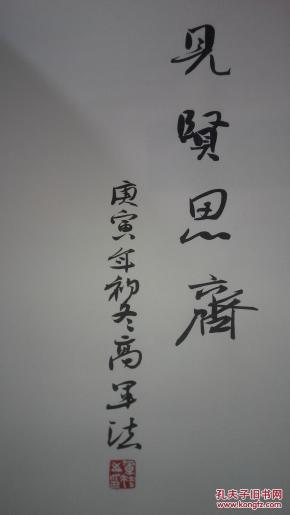 見賢思齊
庚寅年初冬高軍法
孔夫子旧书网